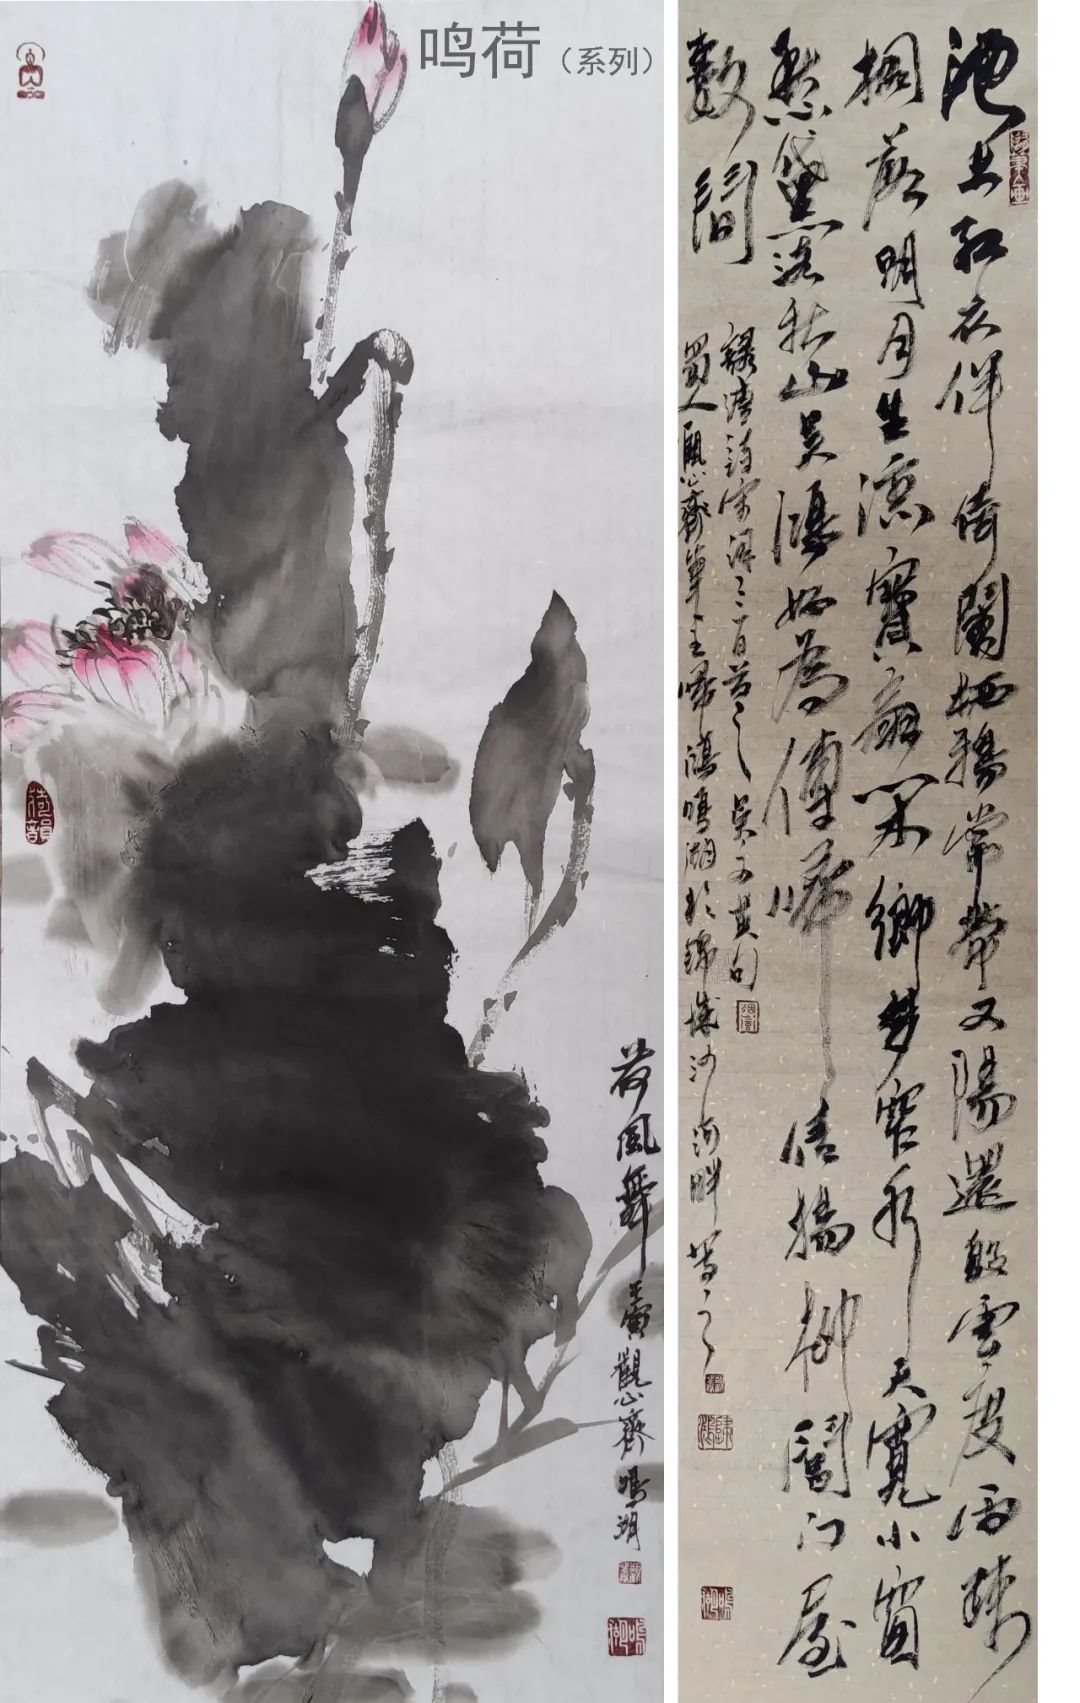 鸣荷（系列）
荷風舞
觀心齊鳴湖
荷韻
池上紅衣伴倚闌栖鴉常帶夕陽還殷雲度雨疎
桐落明月生涼寶扇閑鄉夢窄水天寬小窗
愁黛淡秋山吴鴻好為傳歸信楊柳閶門屋
數間
宋詞三百首之吴文英句
蜀人觀心齊草主歸鴻鳴湖於錦城沙河畔